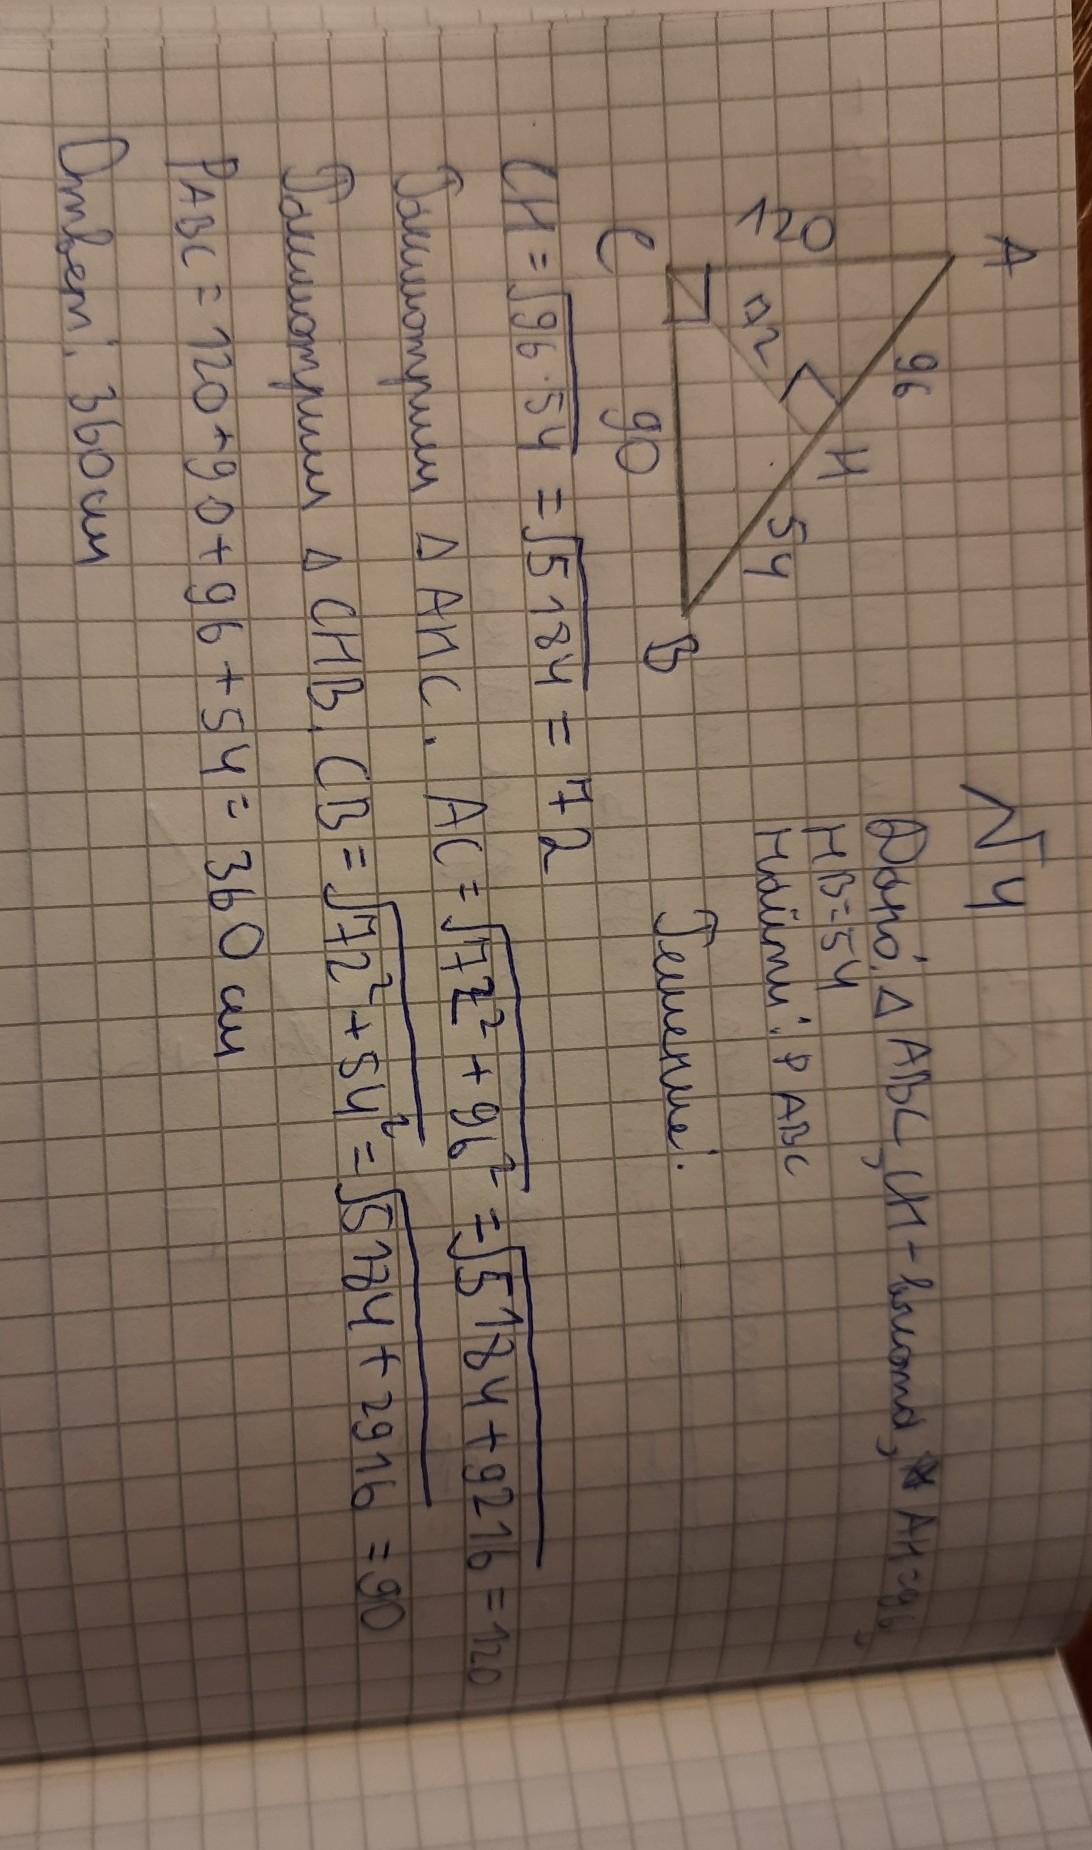 √4
Дано: Δ ABC, CH - высота, AH=96,
HB=54
Найти: P ABC
A
96
120
72
H
54
C
90
B
Решение:
CH = √96·54 = √5184 = 72
Рассмотрим Δ AHC. AC = √72² + 96² = √5184 + 9216 = 120
Рассмотрим Δ CHB. CB = √72² + 54² = √5184 + 2916 = 90
PABC = 120 + 90 + 96 + 54 = 360 см
Ответ: 360 см